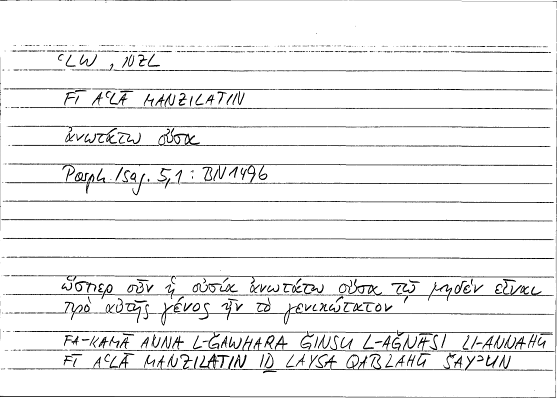 ʿLW , NZL
FĪ AʿLĀ MANZILATIN
ἀνωτάτω οὖσα
Porph. Isag. 5,1 : BN 149b
ὥσπερ οὖν ἡ οὐσία ἀνωτάτω οὖσα τῷ μηδὲν εἶναι
πρὸ αὐτῆς γένος ἦν τὸ γενικώτατον,
FA-KAMĀ ANNA L-ǦAWHARA ǦINSU L-AǦNĀSI LI-ANNAHŪ
FĪ AʿLĀ MANZILATIN IḎ LAYSA QABLAHŪ ŠAYʾUN